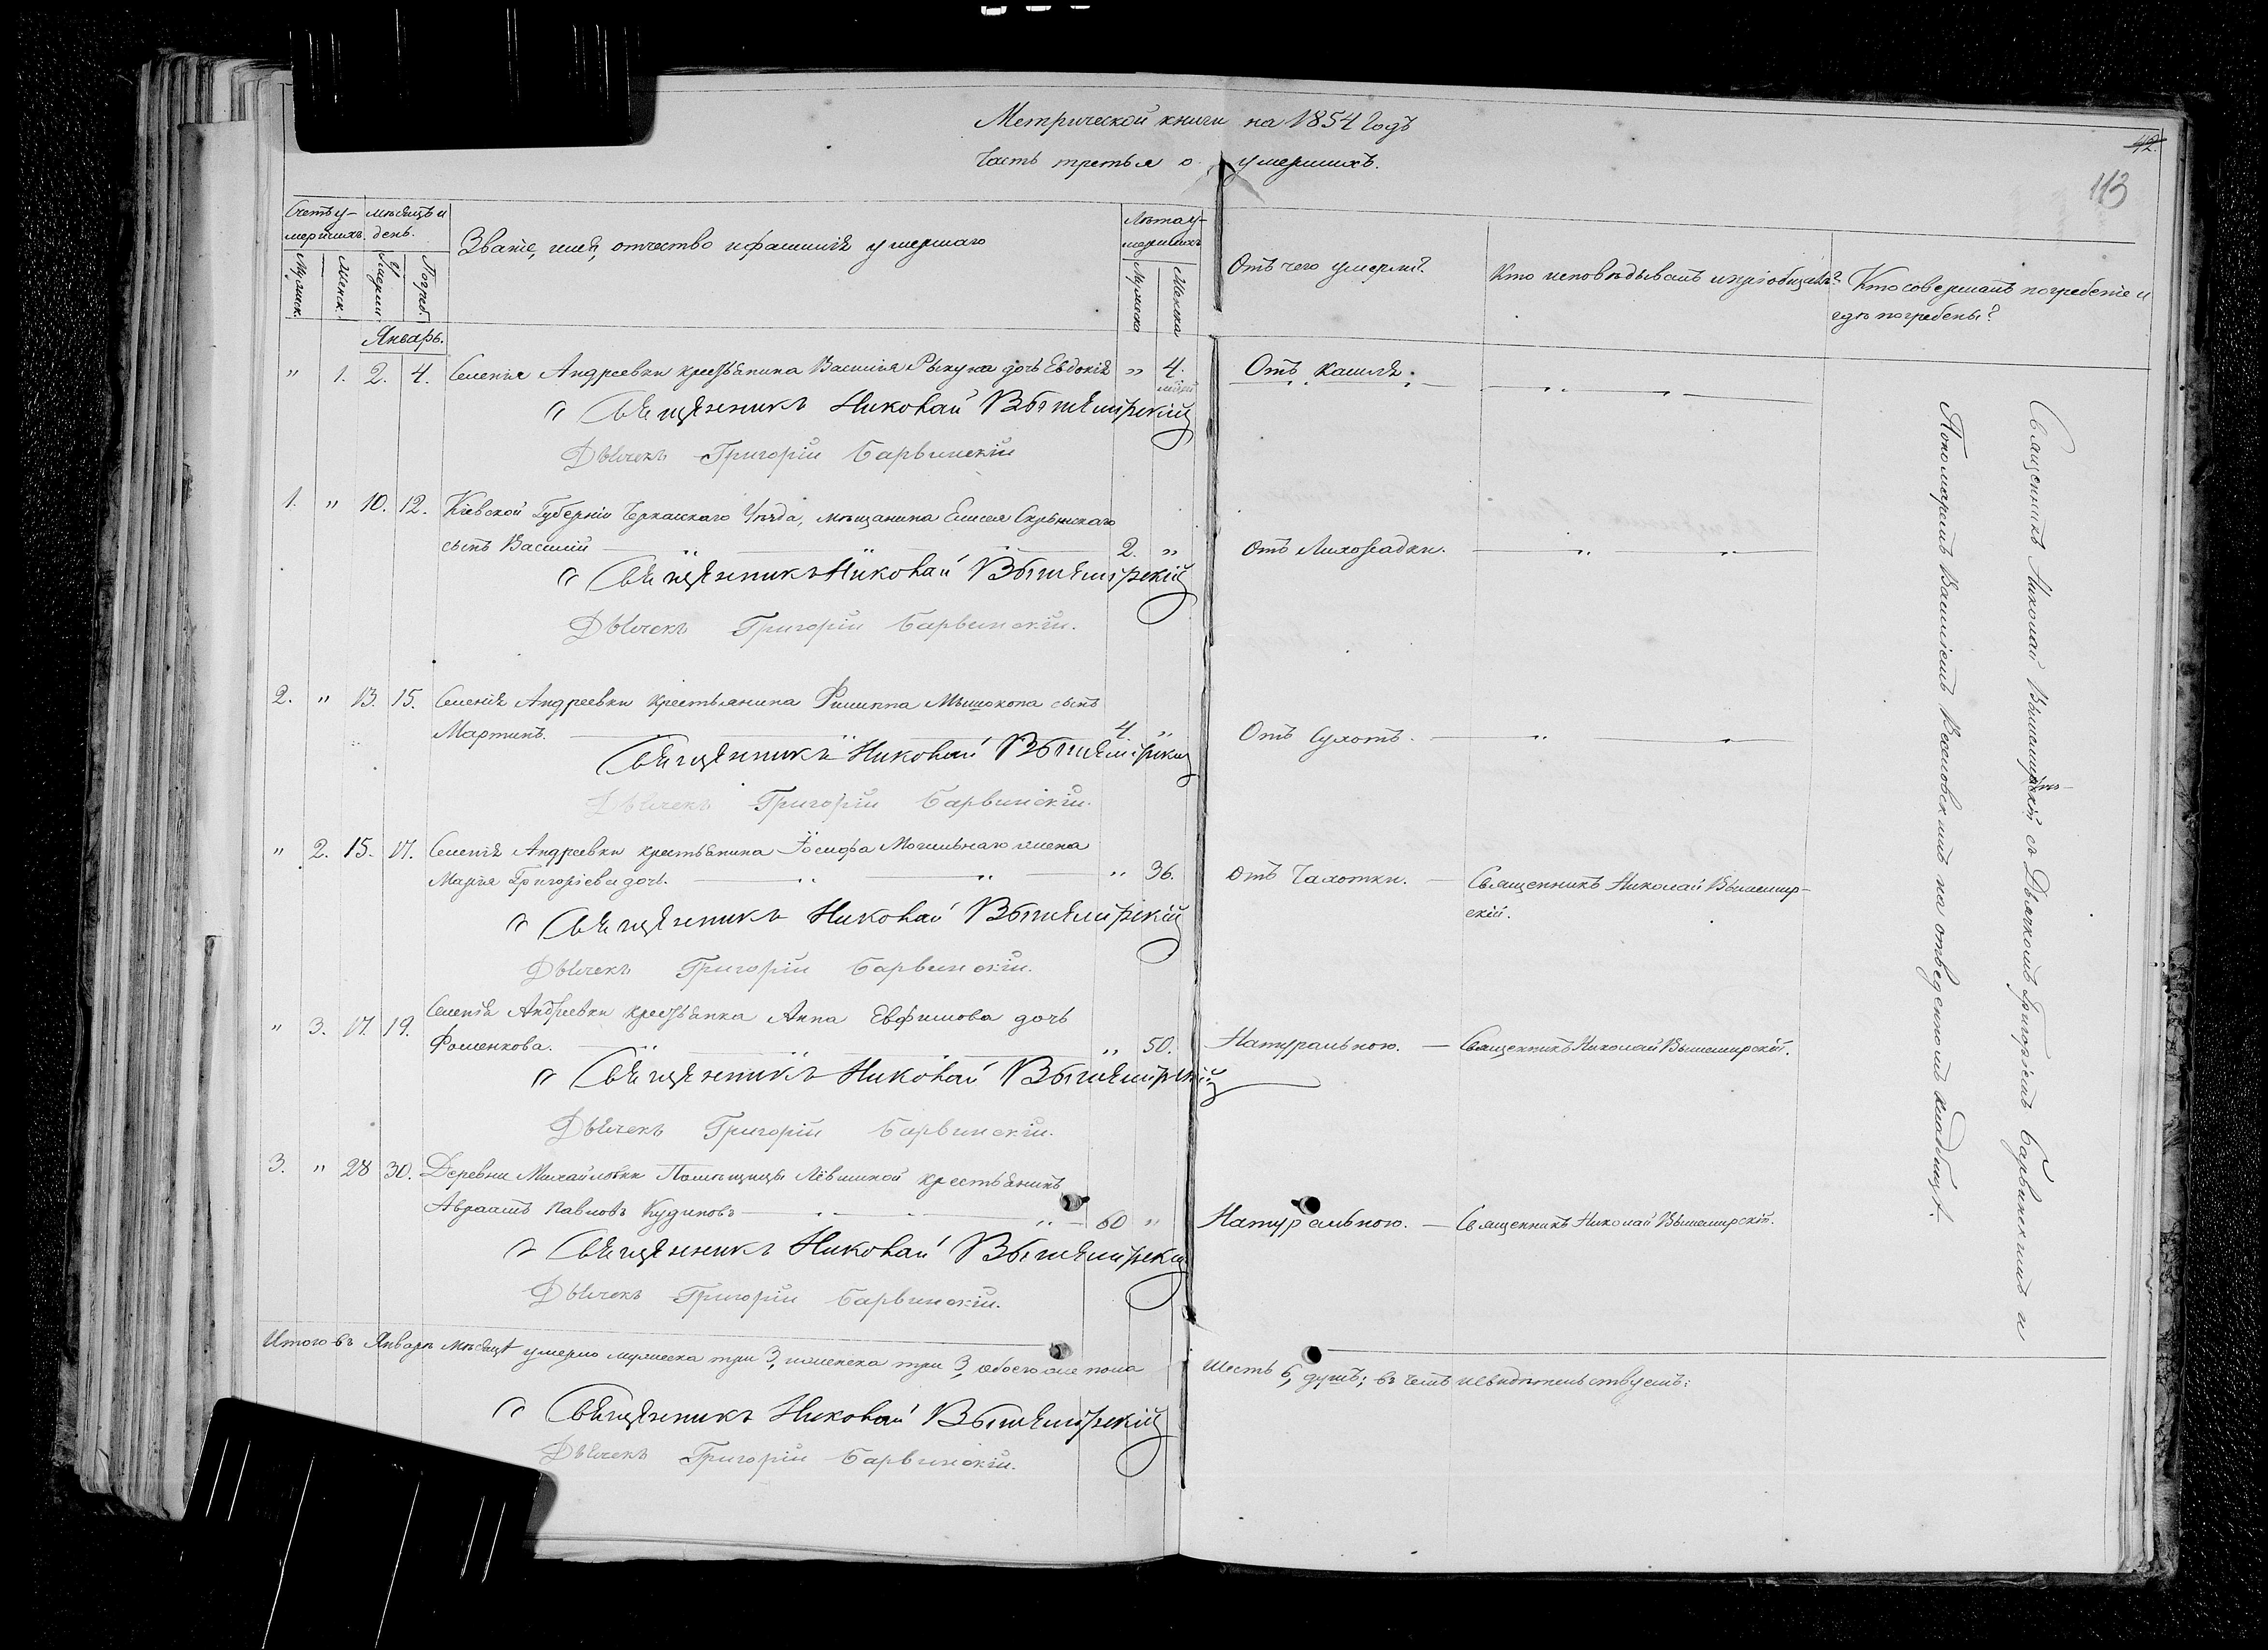 Метрической книги на 1854 годъ
Часть третья о умершихъ.
42.
113
Счетъ у-
мершихъ.
Мѣсяцъ и
день.
Званіе, имя, отчество и фамилія умершаго
Лѣта у-
мершихъ
Отъ чего умерли?
Кто исповѣдывалъ и пріобщалъ?
Кто совершалъ погребеніе и
гдѣ погребены?
Мужеск.
Женск.
Умерш.
Погреб.
Мужеска
Женска
Январь.
" 1. 2. 4. Селенія Андреевки крестьянина Василія Рыкуна дочь Евдокія " 4. Отъ кашля.
Священникъ Николай Вышемірскій
Дьячекъ Григорій Барвинскій
1. " 10. 12. Кіевской Губерніи Черкасскаго Уѣзда, мѣщанина Елисея Скрынскаго
сынъ Василій 2. " Отъ Лихорадки.
Священникъ Николай Вышемірскій
Дьячекъ Григорій Барвинскій.
2. " 13. 15. Селенія Андреевки крестьянина Филиппа Мышокопа сынъ
Мартинъ. 4. " Отъ Сухотъ.
Священникъ Николай Вышемірскій
Дьячекъ Григорій Барвинскій.
" 2. 15. 17. Селенія Андреевки крестьянина Іосифа Могильнаго жена
Марія Григорьева дочь. " 36. Отъ Чахотки. Священникъ Николай Вышемір-
скій.
Священникъ Николай Вышемірскій
Дьячекъ Григорій Барвинскій.
" 3. 17. 19. Селенія Андреевки крестьянка Анна Евфимова дочь
Фоменкова. " 50. Натуральною. Священникъ Николай Вышемирскій.
Священникъ Николай Вышемірскій
Дьячекъ Григорій Барвинскій.
3. " 28 30. Деревни Михайловки Помѣщицы Лёвшиной крестьянинъ
Авраамъ Павловъ Кудиновъ 60 " Натуральною. Священникъ Николай Вышемирскій.
Священникъ Николай Вышемірскій
Дьячекъ Григорій Барвинскій.
Итого въ Январѣ мѣсяцѣ умерло мужеска три 3, и женска три 3, обоего же пола шесть 6, душъ; въ чемъ и свидѣтельствуемъ:
Священникъ Николай Вышемірскій
Дьячекъ Григорій Барвинскій.
Священникъ Николай Вышемирскій съ Дьячкомъ Григоріемъ Барвинскимъ и
Пономаремъ Василіемъ на отведенномъ кладбищѣ.